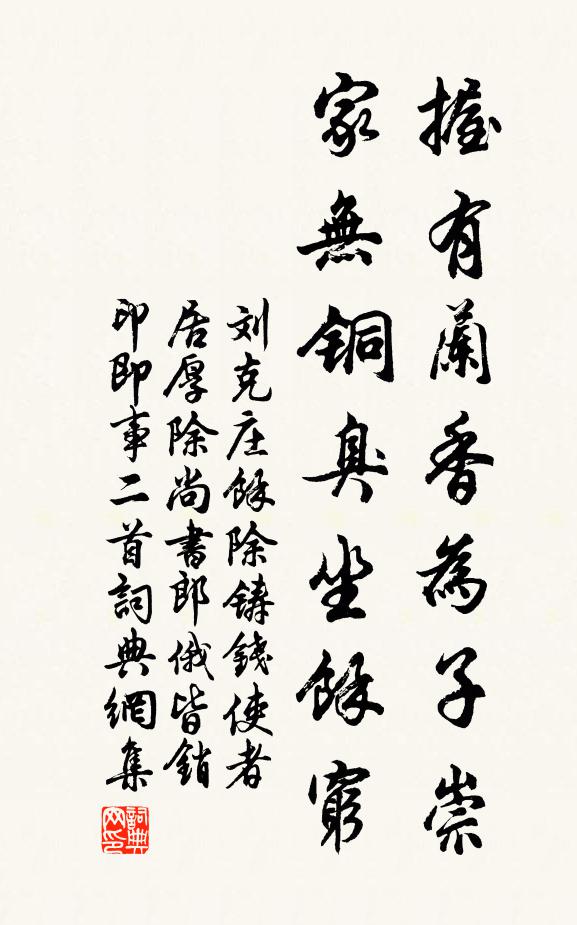 握有蘭香為子崇
家無銅臭坐餘窮
刘克庄餘除鑄錢使者
居厚除尚書郎俄皆銷
印即事二首詞典網集
詞典网印